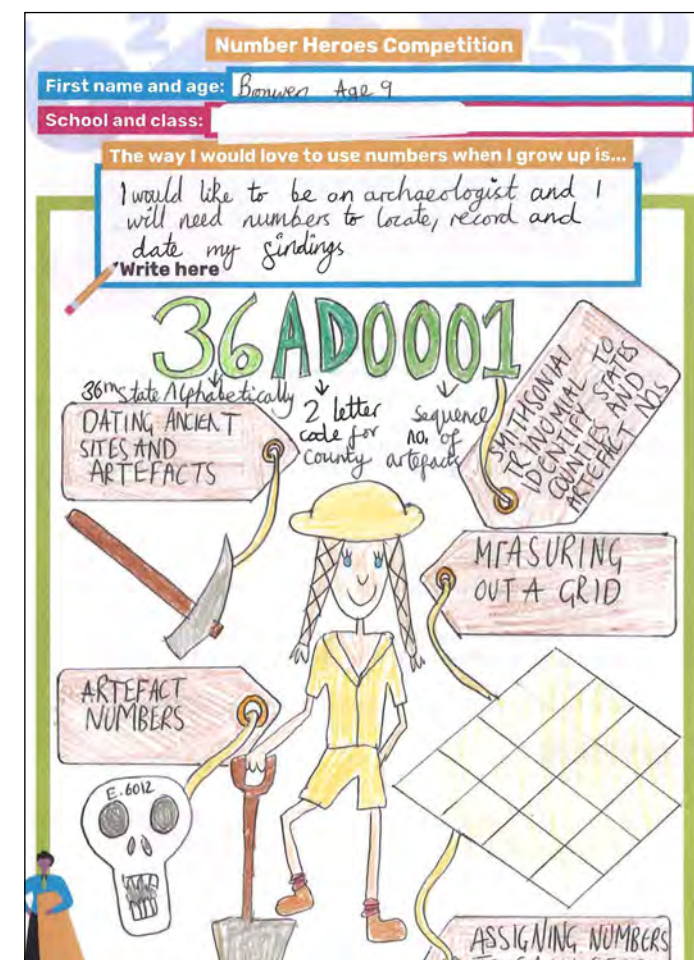 Number Heroes Competition
First name and age: Bronwen Age 9
School and class:
The way I would love to use numbers when I grow up is...
I would like to be an archaeologist and I
will need numbers to locate, record and
date my findings
Write here
36AD0001
36th state Alphabetically
2 letter
code for
county
sequence
no. of
artefacts
SMITHSONIAN
TRINOMIAL TO
IDENTIFY STATES
COUNTIES AND
ARTEFACT NOS
DATING ANCIENT
SITES AND
ARTEFACTS
MEASURING
OUT A GRID
ARTEFACT
NUMBERS
E.6012
ASSIGNING NUMBERS